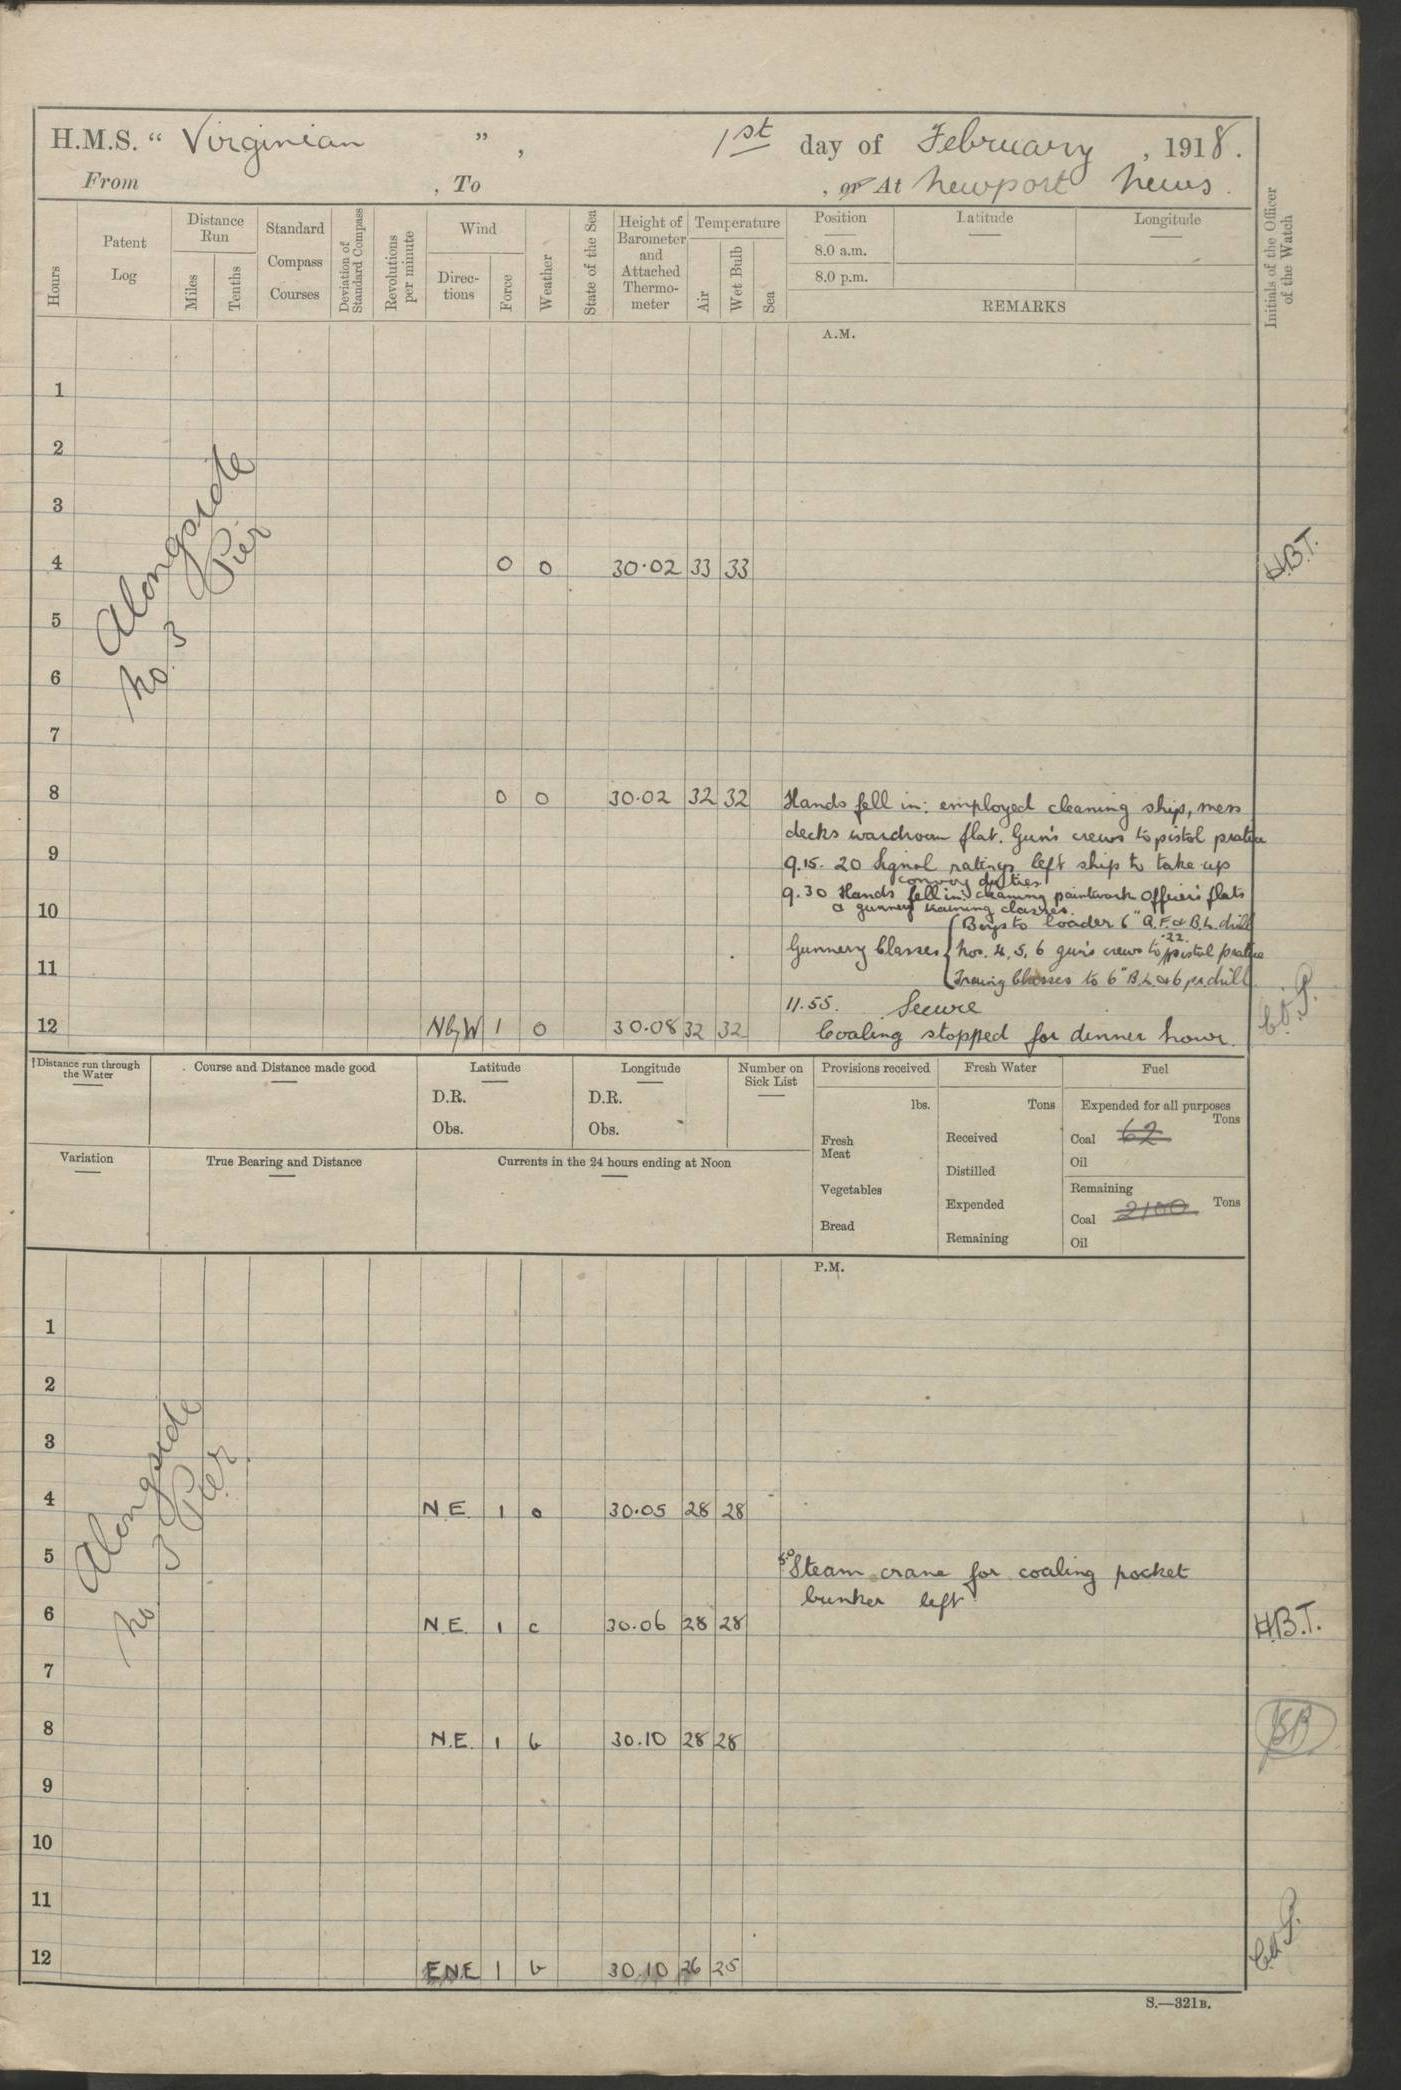 H.M.S. “ Virginian ” , 1st day of February , 1918 .
From , To , or At Newport News .
Hours
Patent Log
Distance Run
Miles
Tenths
Standard Compass Courses
Deviation of Standard Compass
Revolutions per minute
Wind
Direc- tions
Force
Weather
State of the Sea
Height of Barometer and Attached Thermo- meter
Temperature
Air
Wet Bulb
Sea
Position
8.0 a.m.
8.0 p.m.
Latitude
Longitude
REMARKS
Initials of the Officer of the Watch
A.M.
1
2
3
Alongside
No. 3 Pier
4 0 o 30.02 33 33 H.B.T.
5
6
7
8 0 o 30.02 32 32 Hands fell in: employed cleaning ship, mess
decks wardroom flat. Gun's crews to pistol practice
9
9.15. 20 Signal ratings left ship to take up
convoy duties
9.30 Hands fell in: cleaning paintwork Officer's flats
& gunnery training classes.
10
Boys to loader 6" Q.F. & B.L. drill
Gunnery Classes { Nos. 4, 5, 6 gun's crews to .22 pistol practice
11
Classes to 6" B.L. & 6 pr. drill
11.55. Secure
12 NbyW 1 o 30.08 32 32 Coaling stopped for dinner hour.
Distance run through the Water
Course and Distance made good
Latitude
D.R.
Obs.
Longitude
D.R.
Obs.
Number on Sick List
Provisions received
lbs.
Fresh Meat
Vegetables
Bread
Fresh Water
Tons
Received
Distilled
Expended
Remaining
Fuel
Expended for all purposes
Tons
Coal 62
Oil
Remaining
Coal 2100 Tons
Oil
Variation
True Bearing and Distance
Currents in the 24 hours ending at Noon
P.M.
1
2
3
Alongside
No 3 Pier
4 N.E. 1 o 30.05 28 28
5
5.0 Steam crane for coaling pocket
bunker left
6 N.E. 1 c 30.06 28 28 H.B.T.
7
8 N.E. 1 b 30.10 28 28
9
10
11
12 ENE 1 b 30.10 26 25
S.—321B.